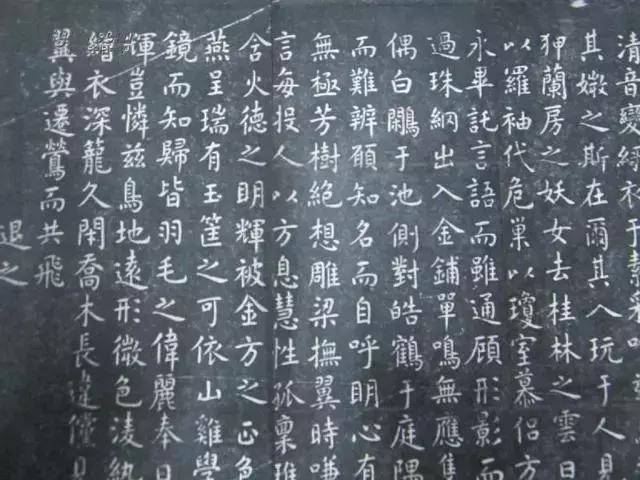 清音變
其媺之斯在爾其入玩于人見
狎蘭房之妖女去桂林之雲日
以羅袖代危巢以瓊室慕侣方
永畢託言語而雖通顧形影而
過珠納出入金鋪單鳴無應隻
偶白鷴于池側對皓鶴于庭隅
而難辨願知名而自呼明心有
無極芳樹絕想雕梁撫翼時嗛
言每投人以方息慧性孤稟雅
含火德之明輝被金方之正色
燕呈瑞有玉筐之可依山雞學
鏡而知歸皆羽毛之偉麗奉日
輝豈憐兹鳥地遠形微色淩紈
繒衣深籠久閇喬木長違儻見
翼與遷鶯而共飛
退之